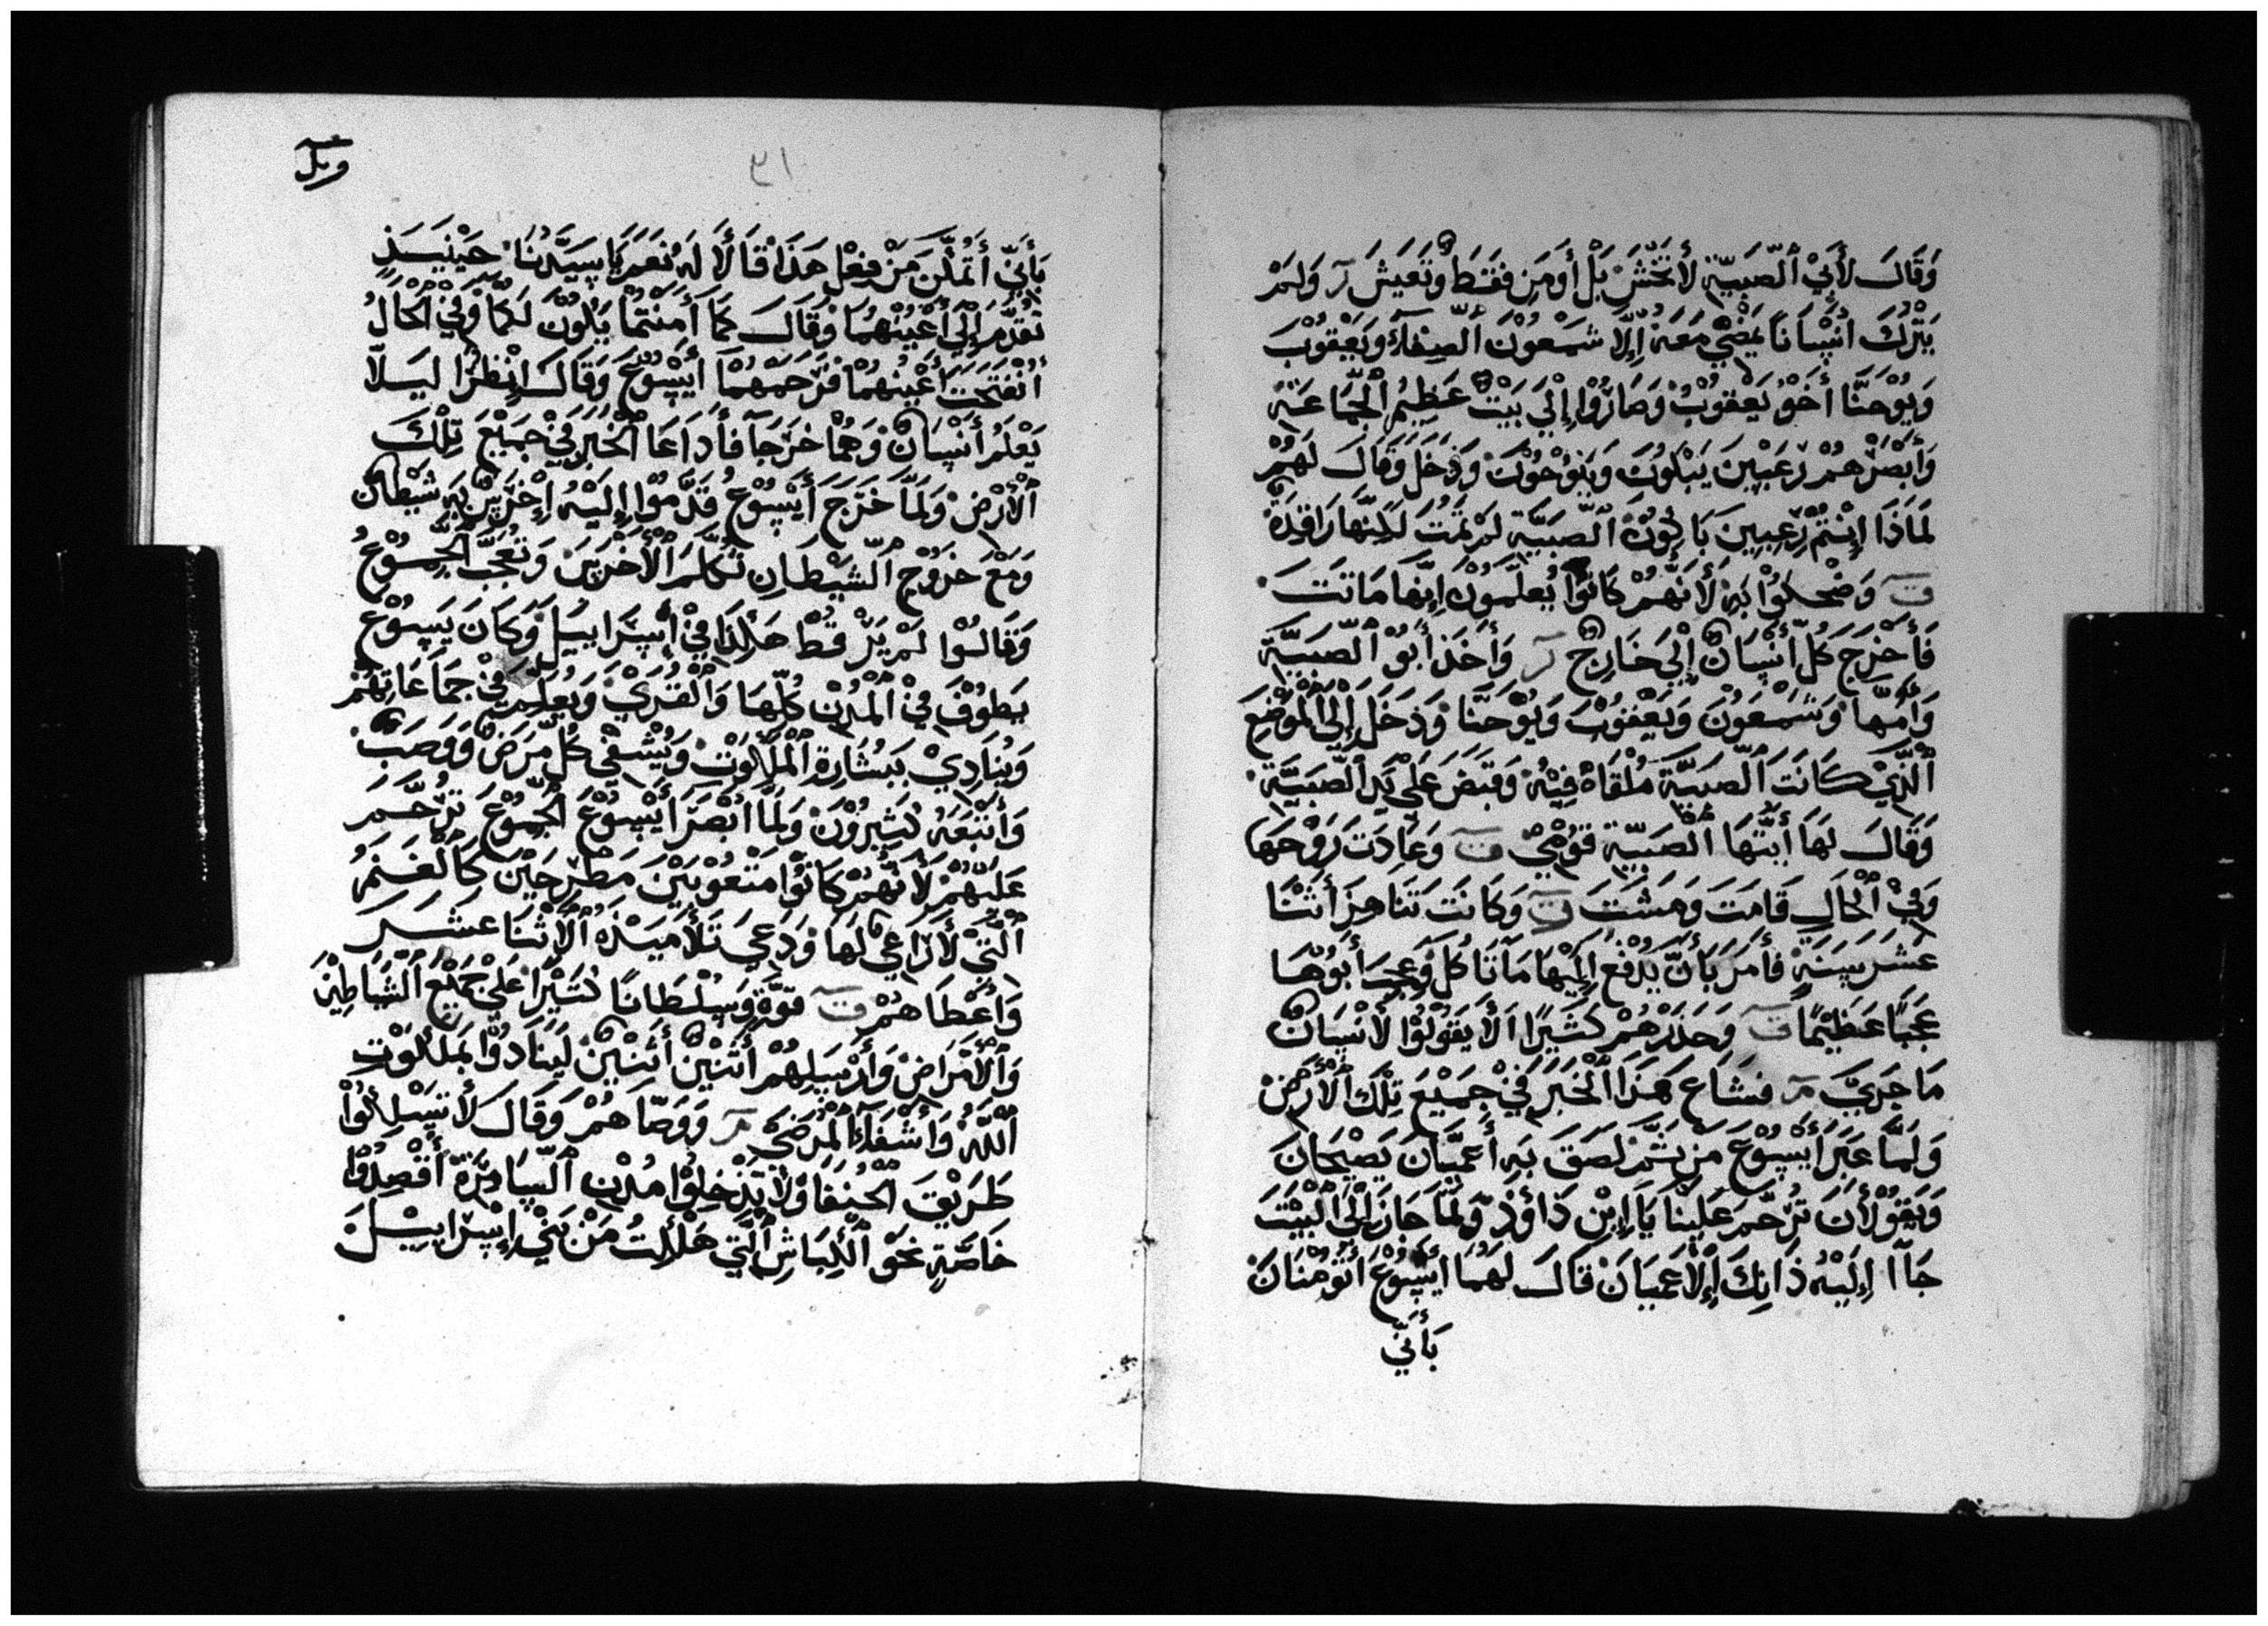 وَقَالَ لأَبِيْ ٱلصَّبِيَّة لأ تَخْشَ بَلْ أَومِن فَقَط وَتَعَيشَ ر وَلَمْ
يَتْرُك انْسَانًا يَمْضِيْ مَعَهُ إِلَّا شَمْعُوْنَ الصفاء وَيَعْقُوْبَ
وَيُوْحَنَّا أَخُوْ يَعْقُوْبَ وَصَارُوْا إِلَىْ بَيْت عَظِيْمِ الْجَمَاعَة
وَأَبْصَرَهُمْ رَعِبِيْنَ يَبْكُوْنَ وَيَنُوْحُوْنَ وَدَخَلَ وَقَالَ لَهُمْ
لَمَاذَا إِنْتُمْ رَعِبِينَ بَاكِيُوْنَ ٱلصَّبِيَّة لَمْ تَمُتْ لَكِنَّهَا رَاقِدَة
ت وَضْحكُوْا بِهِ لأَنَّهُمْ كَانُوْا يُعلَمُوْن إِنَّهَا مَاتَتَ
فَأَخْرَجَ كُلّ أَنْسَان إِلَىَ خَارِج ر وَأَخَذَ أَبُوْ ٱلصَّبِيَّة
وَأُمَّهَا وَشَمْعُوْنَ وَيَعْقُوْبَ وَيُوْحَنَّا وَدَخَلَ إِلَىْ ٱلْمَوْضِع
ٱلَّذِيْ كَانَتَ ٱلصَّبِيَّة مُلْقَاة فِيْهِ وَقَبَضَ عَلَىْ يَد ٱلصَّبِيَّة
وَقَالَ لَهَا أَيَّتُهَا ٱلصَّبِيَّة قُوْمِيْ ت وَعَادَت رَوْحَهَا
وَفِيْ ٱلْحَالِ قَامَتَ وَمَشَتَ ت وَكَانَتَ تَنَاهِزَ أَثْنَا
عَشَر سَنَةٍ فَأَمَرَ بَأَنْ يُدْفَعَ إِلَيْهَا مَا تَاكُل وَعَجِبَ أَبُوْهَا
عَجَبًا عَظِيْمًا ت وَحَذَرَهُمْ كَثَيْرًا ألأ يَقُوْلُوْا لأَنْسَان
مَا جَرَيَ م فَشَاع هَذَا ٱلْخَبَر فِيْ جَمِيْعَ تِلْكَ ٱلأَرْض
وَلَمَّا عَبَرَ أَيْسُوْعَ مِن ثَمَّ لَصَقَ بَهِ أَعْمَيَان يَصِيْحَانَ
وَيَقُوْلأَن تَرْحَّم عَلَيْنَا يَا إِبْن دَاؤُدْ وَلَمَّا حَاز إِلَىْ ٱلْبَيْتَ
جَاآ إِلَيْه ذَانِكَ إِلأعْمَيَان قَالَ لَهُمَا أَيْسُوْع أَتُوْمَنَان
بَأَنِّي
وبل
٣١
بَأَنِّي أَتَمْكَّنَ مَنْ فِعْل هَذَا قَالأَ لَهُ نَعَمْ يَا سَيّدَنَا حَيْنَيذٍ
تَقَدَّمَ إِلَىْ أَعْيُنْهِمَا وَقَالَ كَمَا أَمَنْتُمَا يَكُوْن لَكُمَا وَفِيْ ٱلْحَالْ
أَنْفَتَحْتَ أَعْيُنهُمَا فَزَجَهُمَا أَيْسُوْعَ وَقَالَ انْظُرَا لَيَلَّا
يَعْلَمْ أَنْسَان وَهُمَا خَرَجَا فَأَدَاعَا ٱلْخَبَر فِيْ جَمِيْعَ تِلْكَ
ٱلأَرْض وَلَمَّا خَرَجَ أَيْسُوْعُ قَدَّمُوْا إِلَيْهِ إِخْرَس بِهِ شَيْطَان
وَمَعْ خَرُوْجِ ٱلشَّيْطَانِ تَكَلَّمَ ٱلأَخْرَسَ وَتَعَجَّبَ ٱلْجُمُوْعُ
وَقَالُوْا لَمْ يَرَ قَطْ هَكَذَا فِيْ أَسَرَايِيَل وَكَانَ يَسُوْعْ
يَطُوْفْ فِيْ ٱلْمُدُنْ كُلّهَا وَٱلْقُرَيْ وَيُعَلِمْ فِيْ جَمَاعَاتِهُمْ
وَيُنَادِيْ بَبَشَارِة ٱلْمَلَكُوْت وَيُشْفِيْ كُلّ مَرَض وَوَصَبْ
وَأَتْبَعَهُ كَثِيرُوْن وَلَمَّا أَبْصَرَ أَيْسُوْعَ ٱلْجُمُوْعَ تَرَحَّمَ
عَلَيْهُمْ لأَنَّهُمْ كَانُوْا مَتْعُوْبَيْن مَطْرَحَيْن كَٱلْغَنَمْ
ٱلَّتِيْ لأَرَاعِيْ لَهَا وَدَعَيَ تَلأَمِيَذَه ٱلأَثْنَا عَشَر
وَأَعْطَاهُمْ ت قُوَّةٍ وَسُلْطَانًا كَثَيْرًا عَلَىْ جَمِيْع ٱلشَّيَاطِيْن
وَٱلأَمْرَاض وَأَرْسَلِهُمْ أَثْنَيْن أَثْنَيْن لَيَنَادُوْا بَمَلَكُوْت
ٱللَّهْ وَأَشْفَاء ٱلْمَرْضَيْ م وَوَصَّاهُمْ وَقَالَ لأ تَسْلِكُوْا
طَرِيْقَ ٱلْحُنَفَا وَلأ تَدْخِلُوْا مُدْن ٱلسَّامِرَة أَقْصِدُوْا
خَاصَّةٍ نَحْوَ ٱلْكِبَاشِ ٱلَّتِيْ هَلَكَتْ مَنْ بَنِيْ إِسْرَايِيْلَ